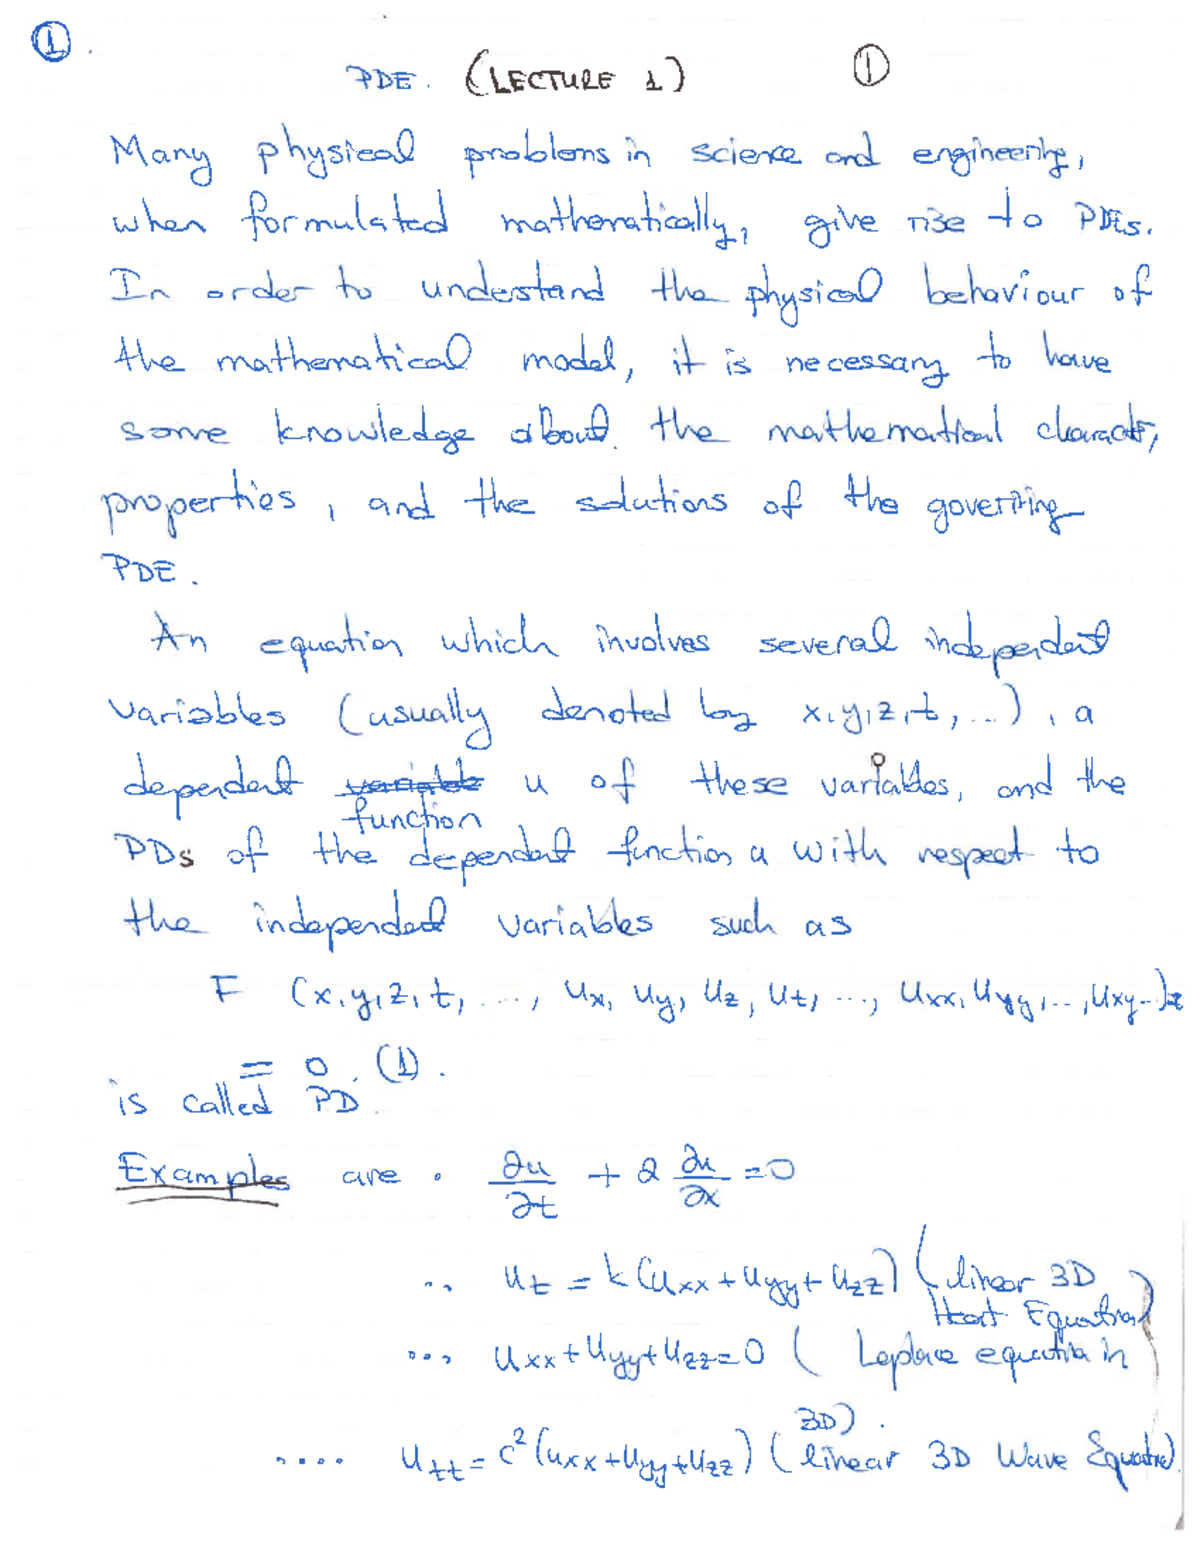 1
PDE. (LECTURE 1) 1
Many physical problems in science and engineering,
when formulated mathematically, give rise to PDEs.
In order to understand the physical behaviour of
the mathematical model, it is necessary to have
some knowledge about the mathematical character,
properties, and the solutions of the governing
PDE.
An equation which involves several independent
variables (usually denoted by x,y,z,t,...), a
dependent variable u of these variables, and the
function
PDs of the dependent function u with respect to
the independent variables such as
F (x,y,z,t,...., ux, uy, uz, ut, ..., uxx, uyy,..., uxy..)=
= 0. (1).
is called PD
Examples are . ∂u/∂t + 2 ∂u/∂x = 0
.. ut = k(uxx + uyy + uzz) (linear 3D
Heat Equation)
... uxx + uyy + uzz = 0 (Laplace equation in
3D).
.... utt = c²(uxx + uyy + uzz) (linear 3D Wave Equation).